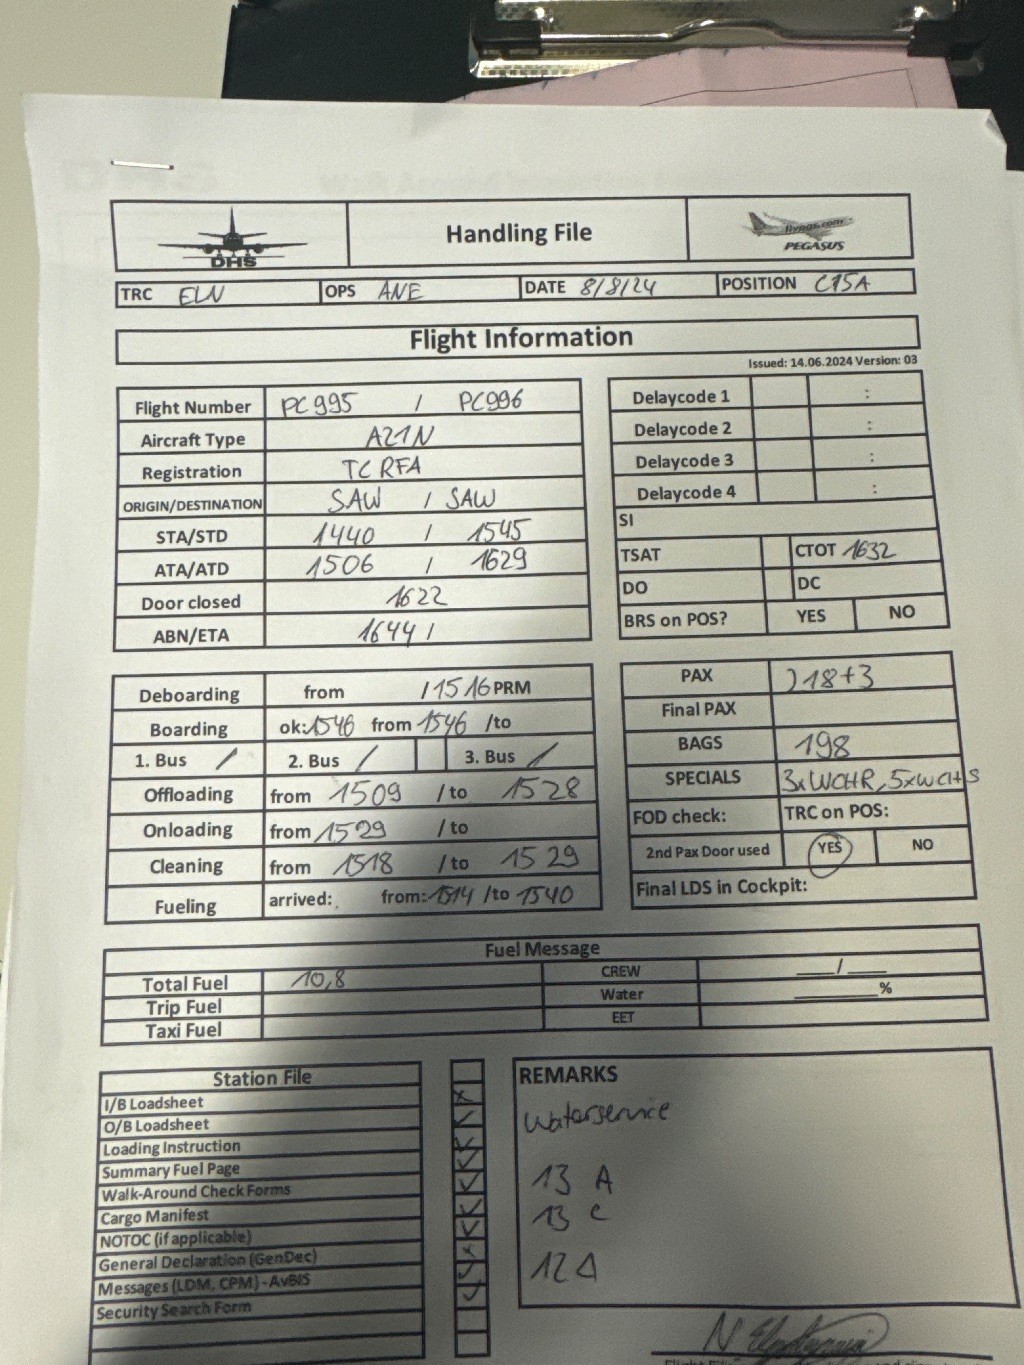 DHS
Handling File
flypgs.com
PEGASUS
TRC ELN OPS ANE DATE 8/8/24 POSITION C15A
Flight Information
Issued: 14.06.2024 Version: 03
Flight Number PC995 / PC996
Aircraft Type A21N
Registration TC RFA
ORIGIN/DESTINATION SAW / SAW
STA/STD 1440 / 1545
ATA/ATD 1506 / 1629
Door closed 1622
ABN/ETA 1644 /
Delaycode 1 :
Delaycode 2 :
Delaycode 3 :
Delaycode 4 :
SI
TSAT CTOT 1632
DO DC
BRS on POS? YES NO
Deboarding from / 1516 PRM
Boarding ok: 1546 from 1546 /to
1. Bus / 2. Bus / 3. Bus /
Offloading from 1509 /to 1528
Onloading from 1529 /to
Cleaning from 1518 /to 1529
Fueling arrived: from: 1514 /to 1540
PAX 218+3
Final PAX
BAGS 198
SPECIALS 3xWCHR, 5xWCHS
FOD check: TRC on POS:
2nd Pax Door used YES NO
Final LDS in Cockpit:
Fuel Message
Total Fuel 10,8 CREW ___/___
Trip Fuel Water ______%
Taxi Fuel EET
Station File
I/B Loadsheet
O/B Loadsheet
Loading Instruction
Summary Fuel Page
Walk-Around Check Forms
Cargo Manifest
NOTOC (if applicable)
General Declaration (GenDec)
Messages (LDM, CPM) - AvBIS
Security Search Form
REMARKS
Waterservice
13 A
13 C
12 A